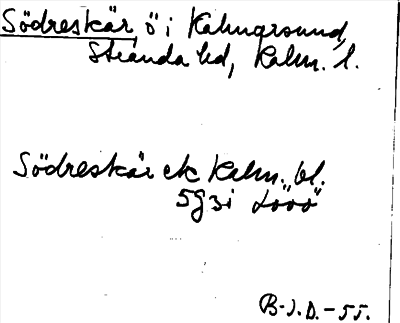 Södreskär, ö i Kalmarsund,
Stranda hd, Kalm. l.
Södreskär ek Kalm. bl.
5g3i
B-J.D.-55.